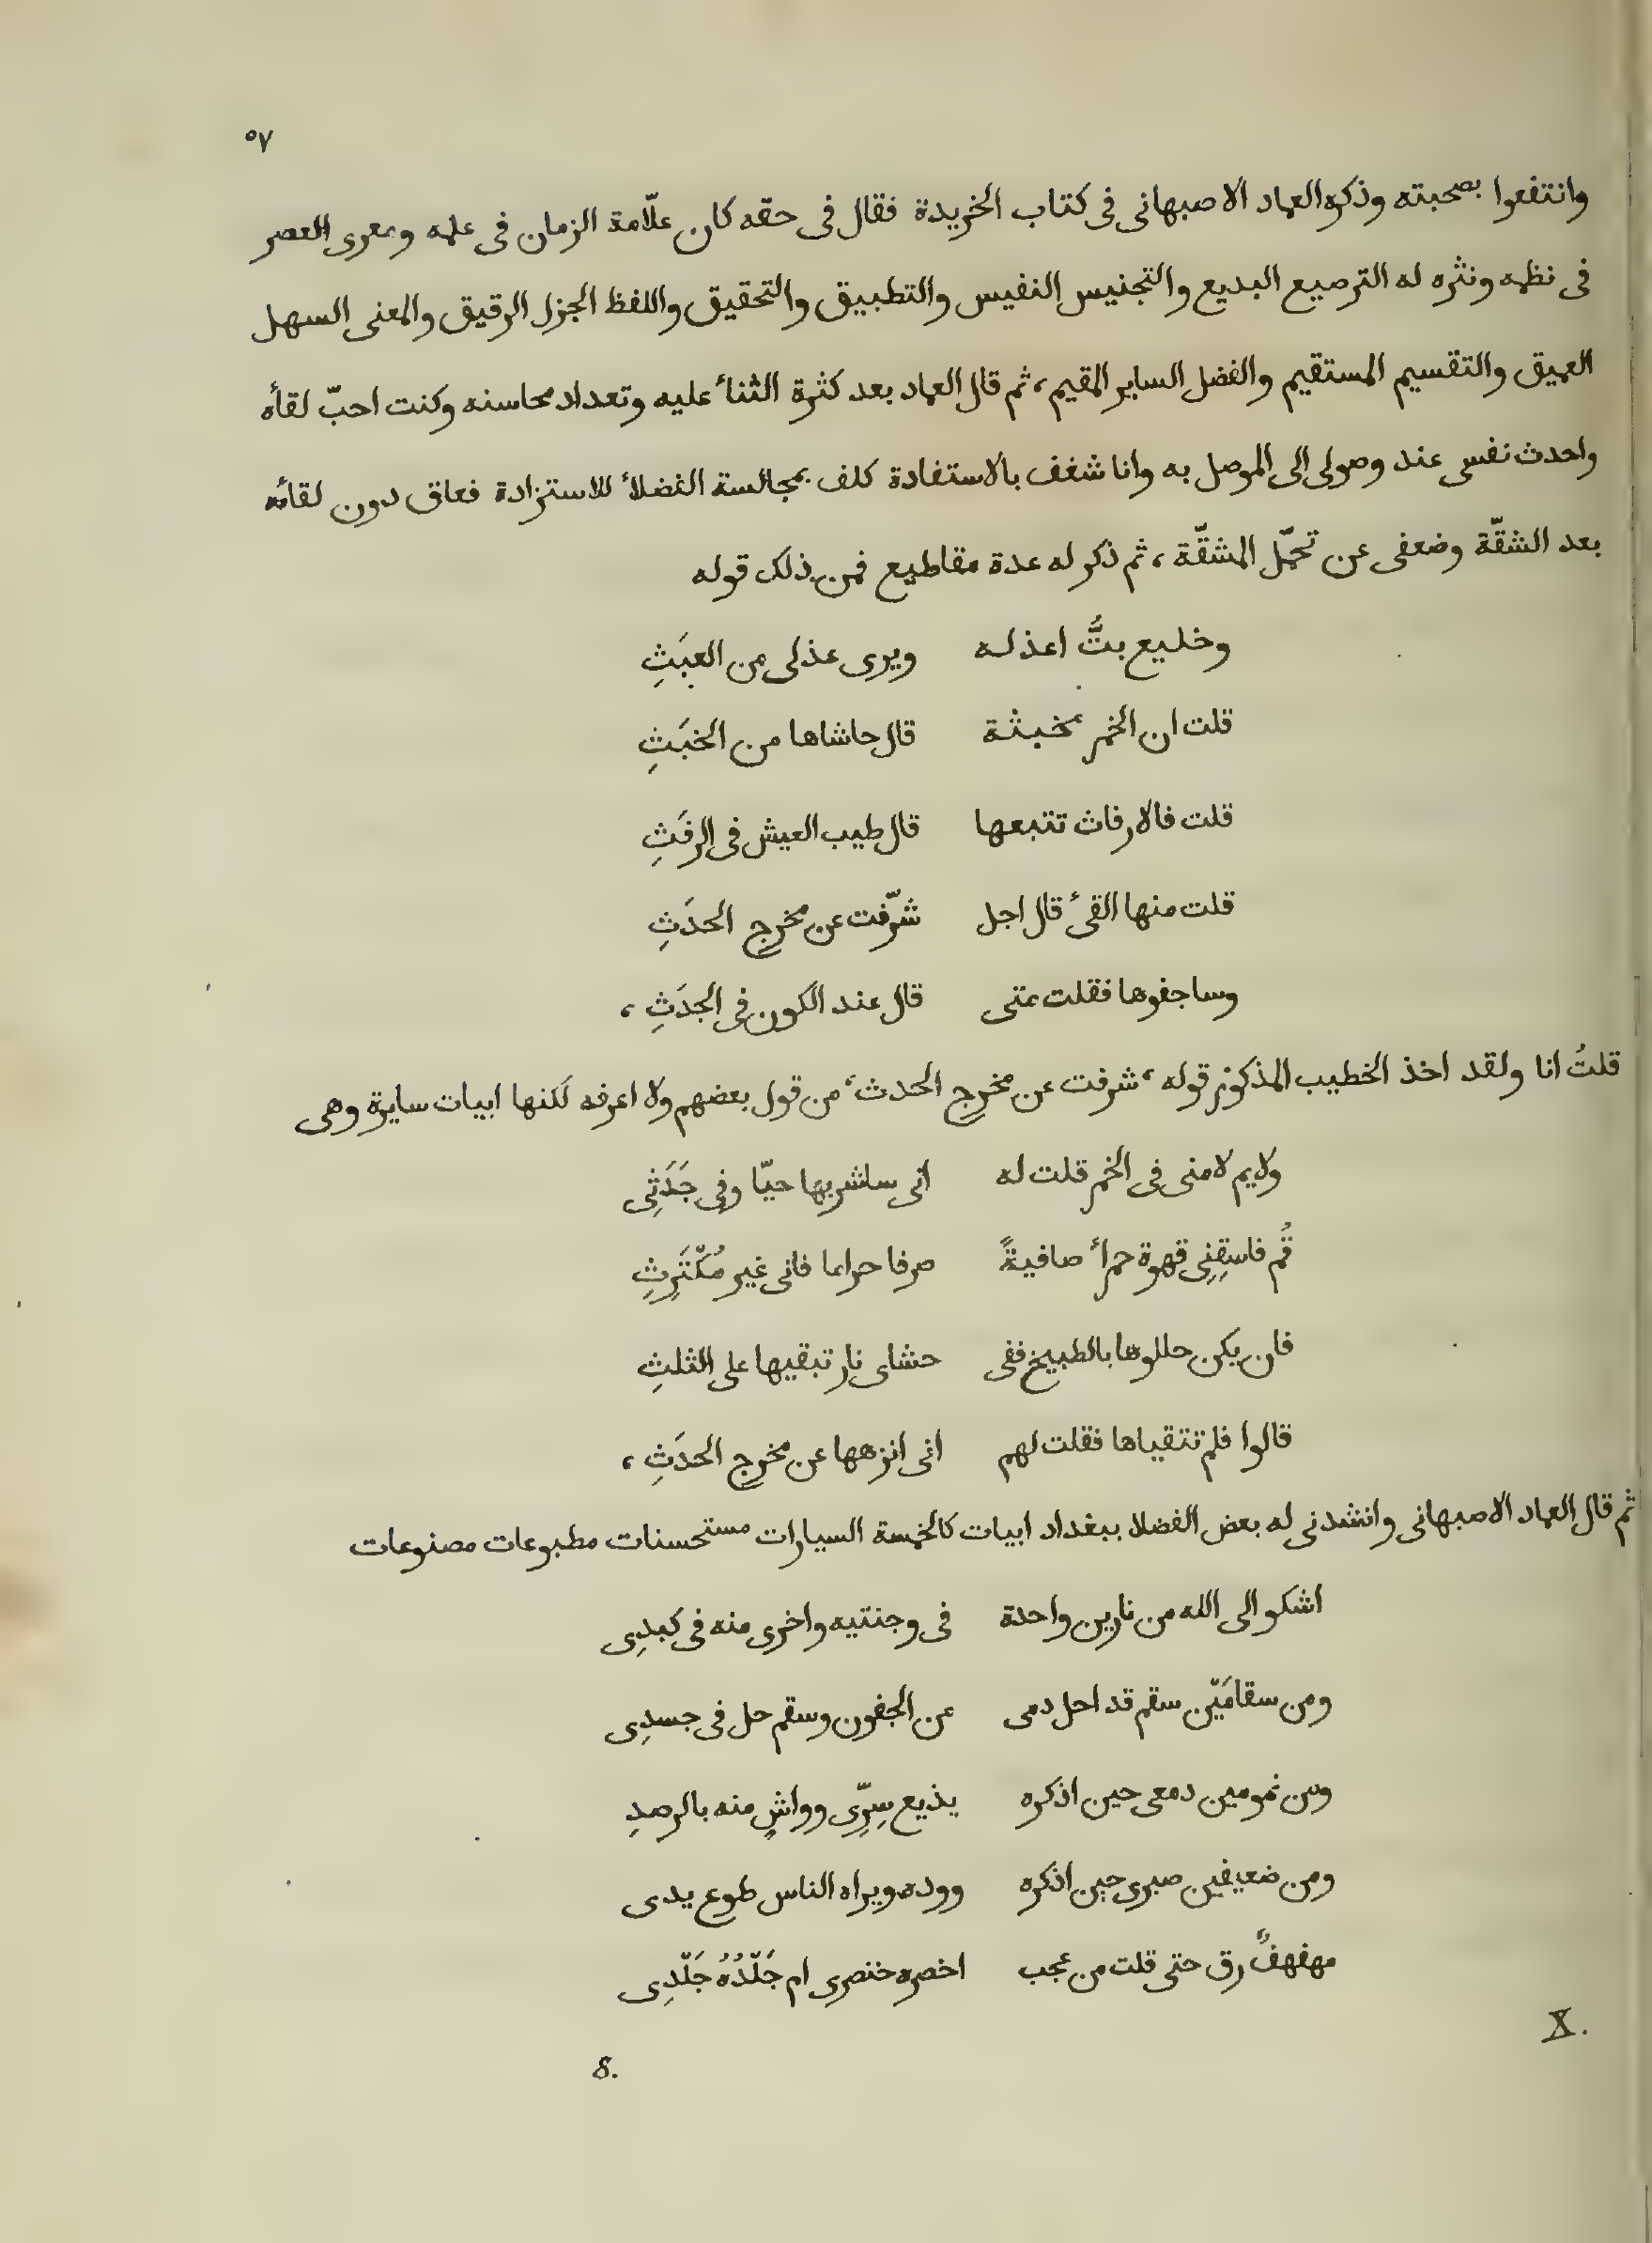 ٥٧
وانتفعوا بصحبته وذكره العماد الاصبهانى فى كتاب الخريدة فقال فى حقه كان علّامة الزمان فى علمه ومعرى العصر
فى نظمه ونثره له الترصيع البديع والتجنيس النفيس والتطبيق والتحقيق واللفظ الجزل الرقيق والمعنى السهل
العميق والتقسيم المستقيم والفضل الساير المقيم، ثم قال العماد بعد كثرة الثناٴ عليه وتعداد محاسنه وكنت احبّ لقاٴه
واحدث نفسى عند وصولى الى الموصل به وانا شغف بالاستفادة كلف بمجالسة الفضلاٴ للاستزادة فعاق دون لقائه
بعد الشقّة وضعفى عن تحمّل المشقّة، ثم ذكر له عدة مقاطيع فمن ذلك قوله
وخليع بتُّ اعذله ويرى عذلى من العبَثِ
قلت ان الخمر مخبثة قال حاشاها من الخبَثِ
قلت فالارفاث تتبعها قال طيب العيش فى الرفَثِ
قلت منها القىٴ قال اجل شرّفت عن مخرج الحدَثِ
وساجفوها فقلت متى قال عند الكون فى الجدَثِ،
قلتُ انا ولقد اخذ الخطيب المذكور قوله ،شرفت عن مخرج الحدث، من قول بعضهم ولا اعرفه لكنها ابيات سايرة وهى
ولايم لامنى فى الخمر قلت له انى ساشربها حيّا وفى جَدَثِى
قُم فاسقِنِى قهوة حمراٴ صافيةً صرفا حراما فانى غير مُكْتَرِثِ
فان يكن حللوها بالطبيخ ففى حشاى نار تبقيها على الثلثِ
قالوا فلم تتقياها فقلت لهم انى انزهها عن مخرج الحدَثِ،
ثم قال العماد الاصبهانى وانشدنى له بعض الفضلا ببغداد ابيات كالخمسة السيارات مستحسنات مطبوعات مصنوعات
اشكو الى الله من نارين واحدة فى وجنتيه واخرى منه فى كبدِى
ومن سقامَيْن سقم قد احل دمى من الجفون وسقم حل فى جسدِى
ومن نمومين دمعى حين اذكره يذيع سِرِّى وواشٍ منه بالرصدِ
ومن ضعيفين صبرى حين اذكره ووده ويراه الناس طوع يدى
مهفهفٌ رق حتى قلت من عجب اخصره خنصرى ام جَلْدُهُ جَلْدِى
X.
8.